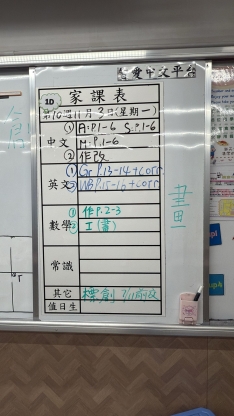 愛中文平台
1D 家課表
第10週11月3日(星期一)
中文
① A:P.1-6 S:P.1-6
M:P.1-6
② 作改
英文
① Gr P.13-14+corr
② WB P.15-16+corr
數學
① 作P.2-3
② 工(書)
常識
其它
值日生
畫